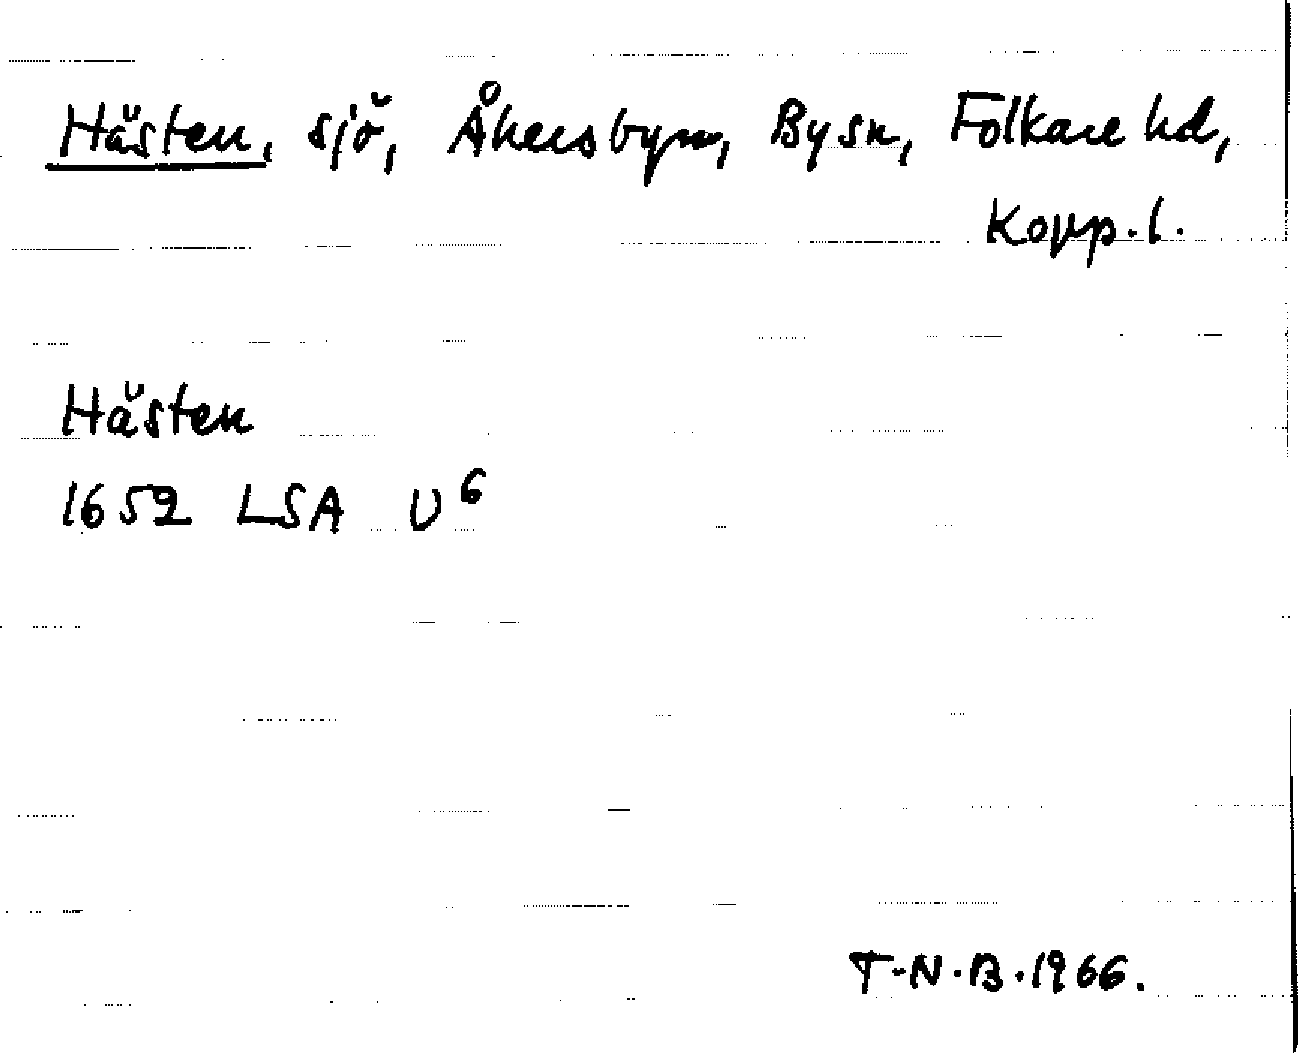 Hästen, sjö, Åkersbyn, By sn, Folkare hd,
Kopp. l.
Hästen
1652 LSA U⁶
T-N.B. 1966.